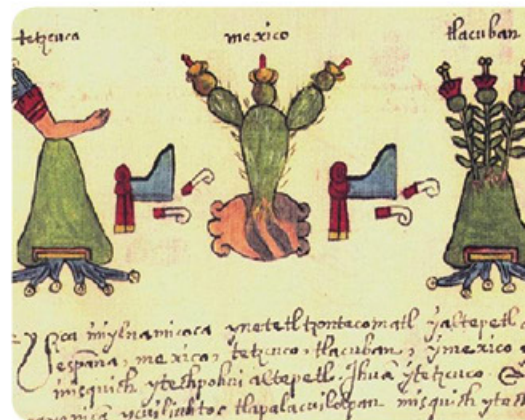 tetzcuca mexico tlacuban
yca inylnamicaca ynetetl tzontecomatl yaltepetl
españa, mexico, tetzcuco, tlacuban, ymexico
misquich ytechpohui altepetl. Jhuā ytetzcuco.
tlapalacuilolpan misquich